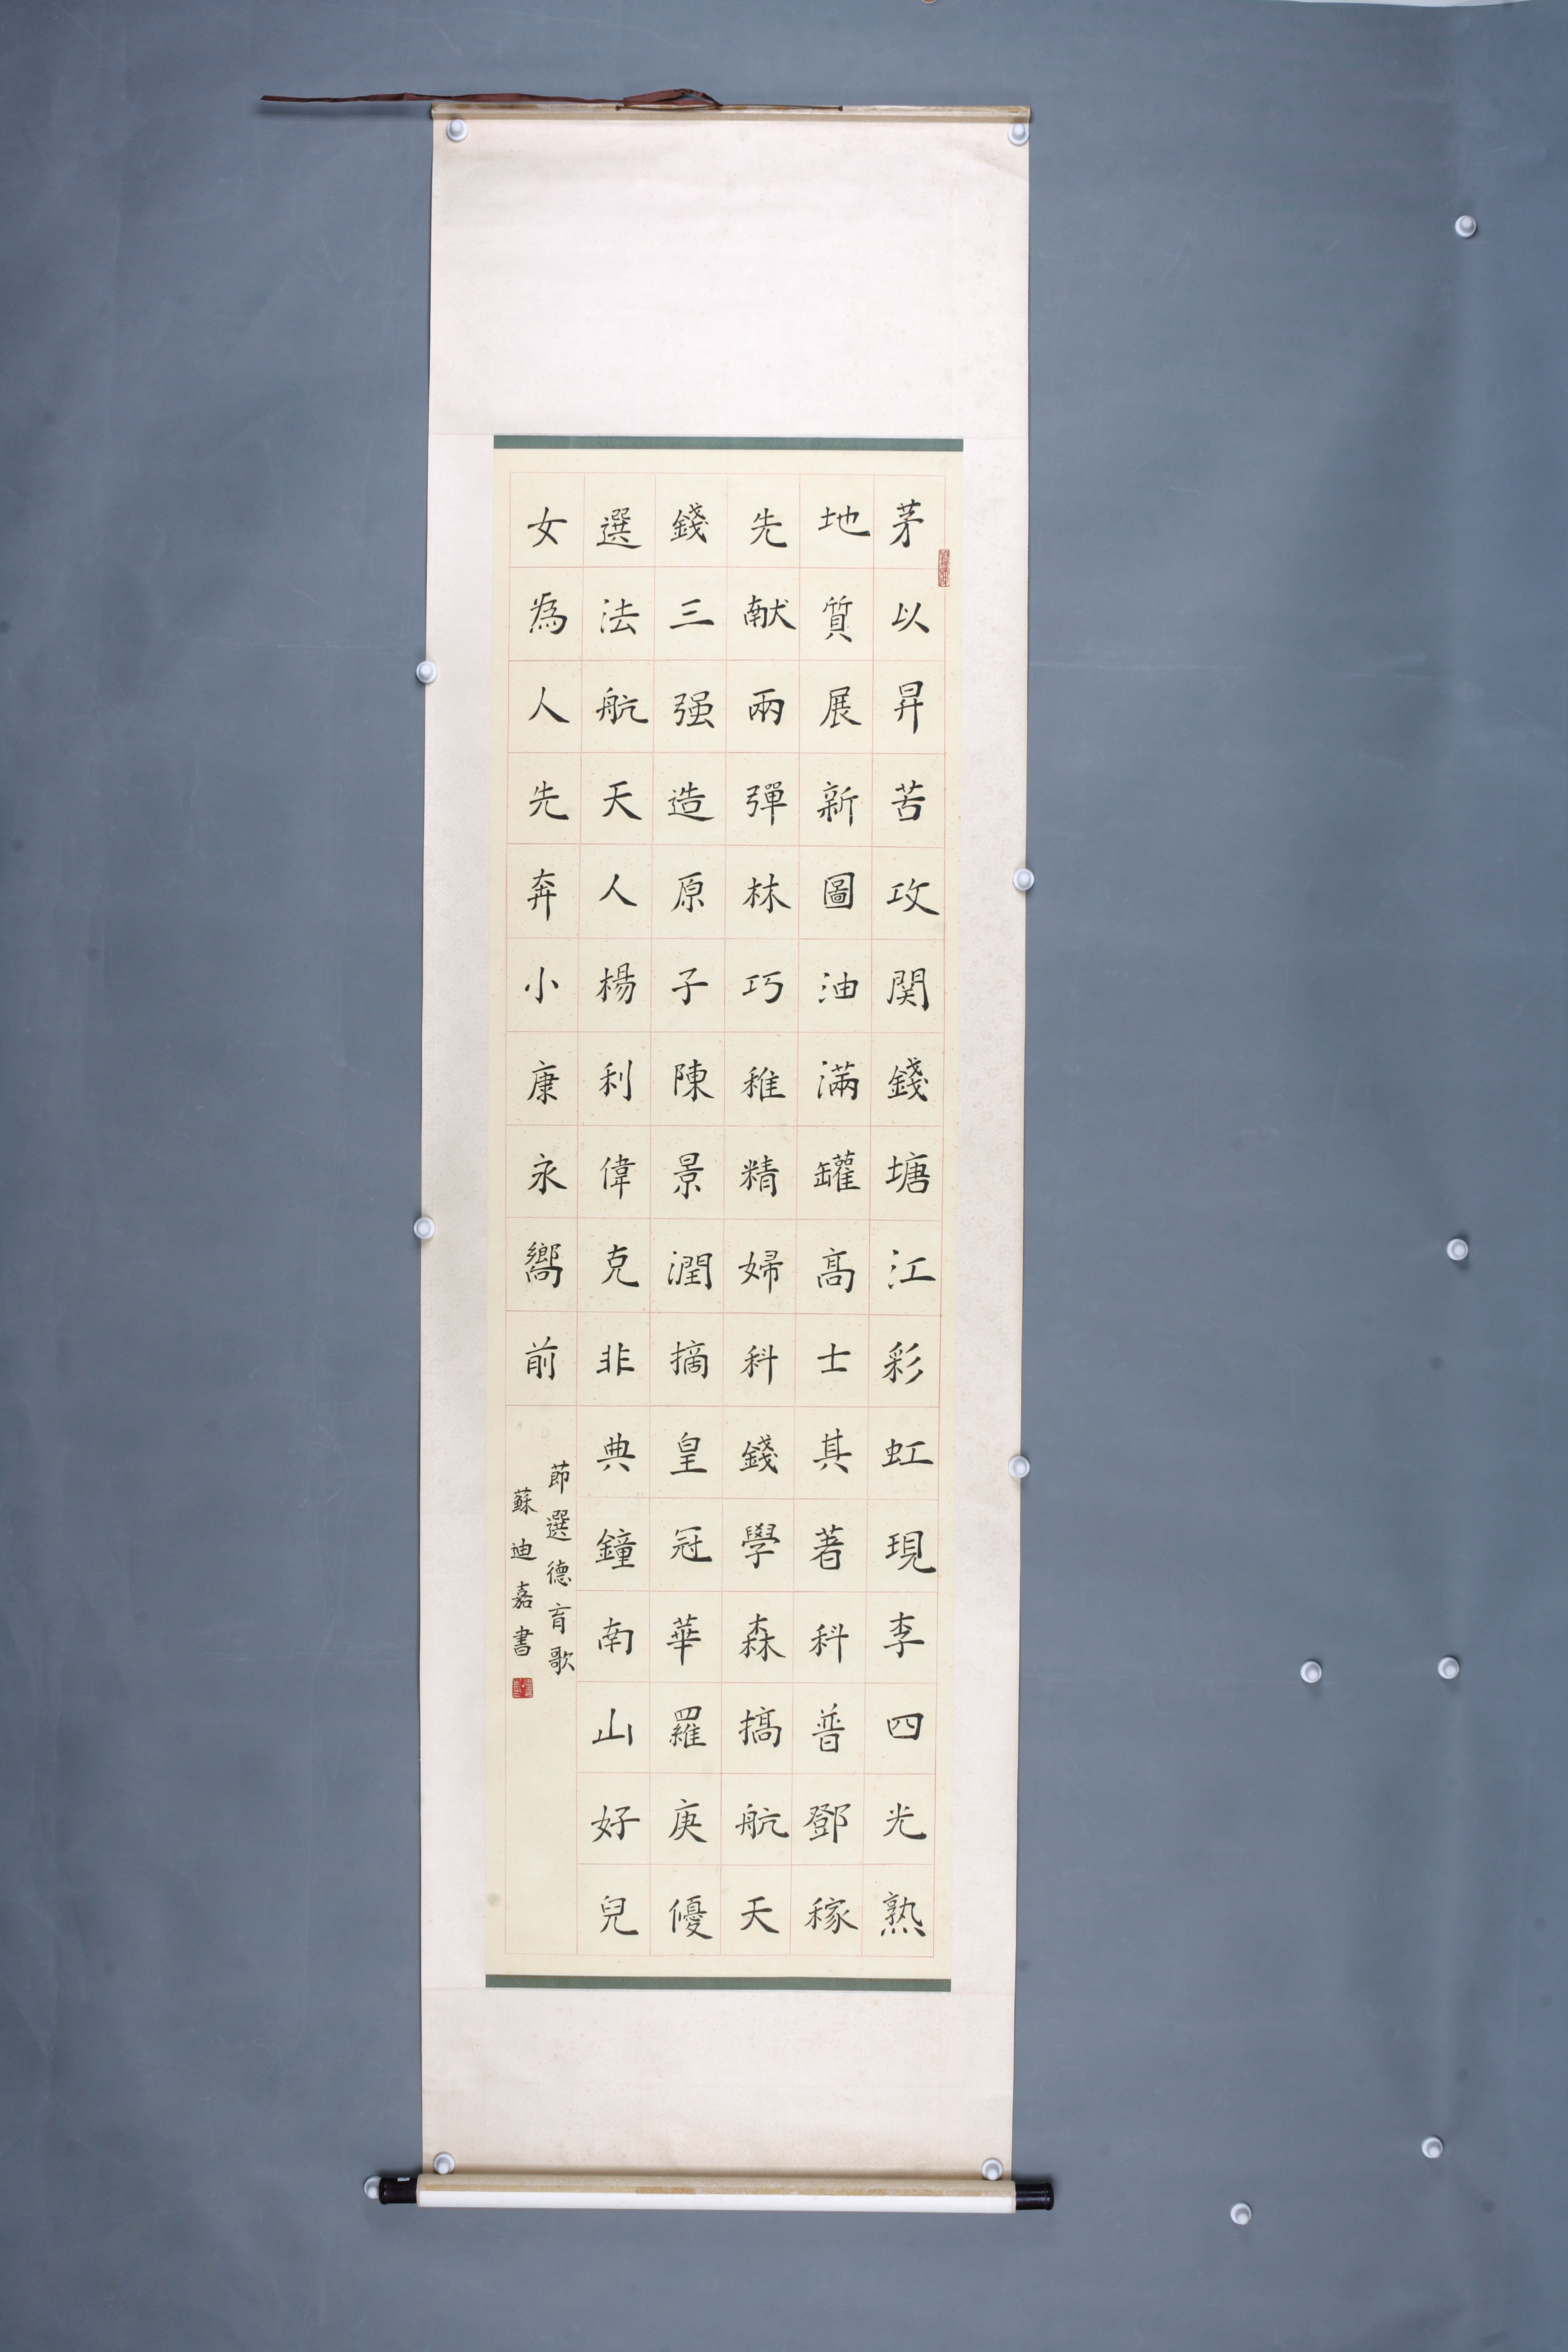 茅以昇苦攻関錢塘江彩虹現李四光熟
地質展新圖油滿罐高士其著科普鄧稼
先献兩彈林巧稚精婦科錢學森搞航天
錢三强造原子陳景潤摘皇冠華羅庚優
選法航天人楊利偉克非典鐘南山好兒
女為人先奔小康永嚮前
節選德育歌
蘇迪嘉書